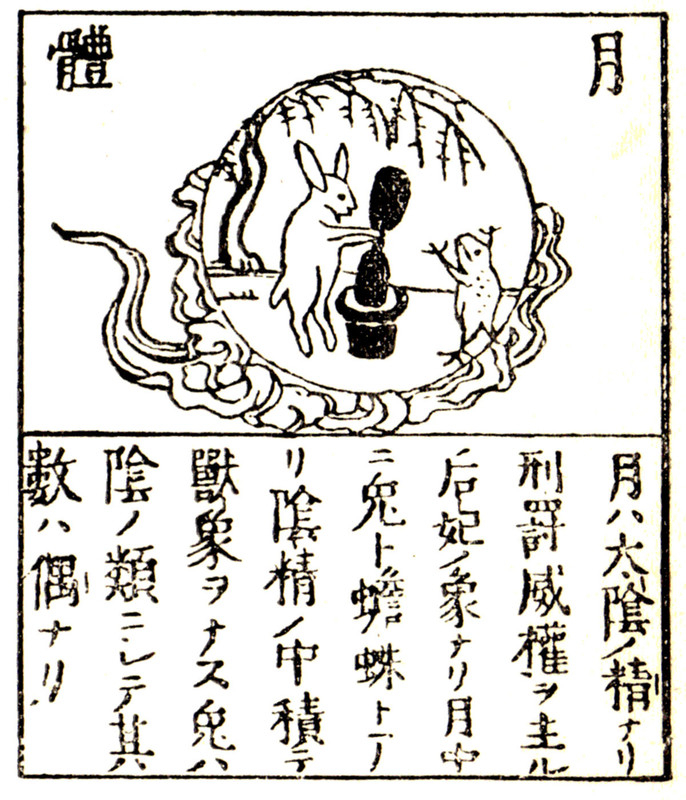 月體
月ハ大陰ノ精ナリ
刑罰威權ヲ主ル
后妃ノ象ナリ月中
ニ兔ト蟾蛛トア
リ陰精ノ中積テ
獸象ヲナス兔ハ
陰ノ類ニシテ其
數ハ偶ナリ